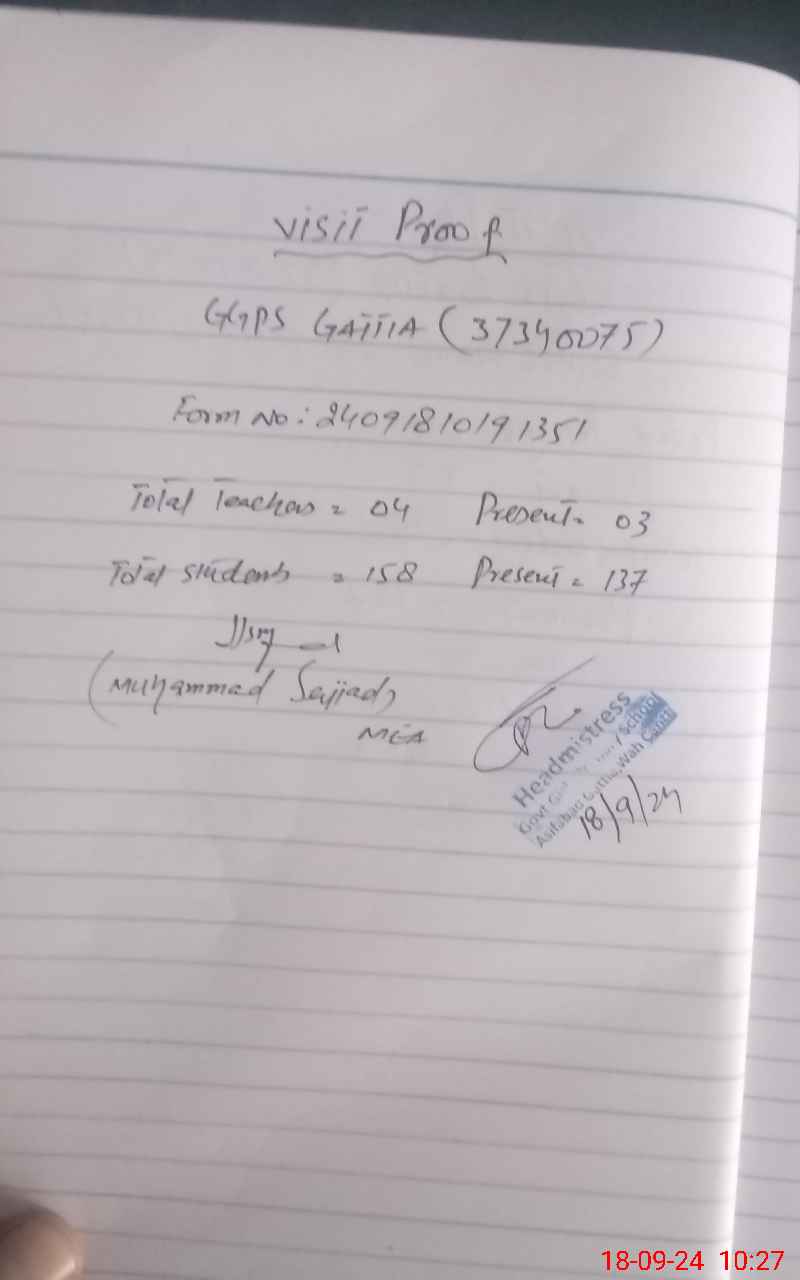 Visit Proof
GGPS GATTIA (37340075)
Form No: 24091810191351
Total Teachers = 04 Present = 03
Total Students = 158 Present = 137
(Muhammad Sajjad)
MEA
Headmistress
Govt School
Asifabad Wah Cantt
18/9/24
18-09-24 10:27